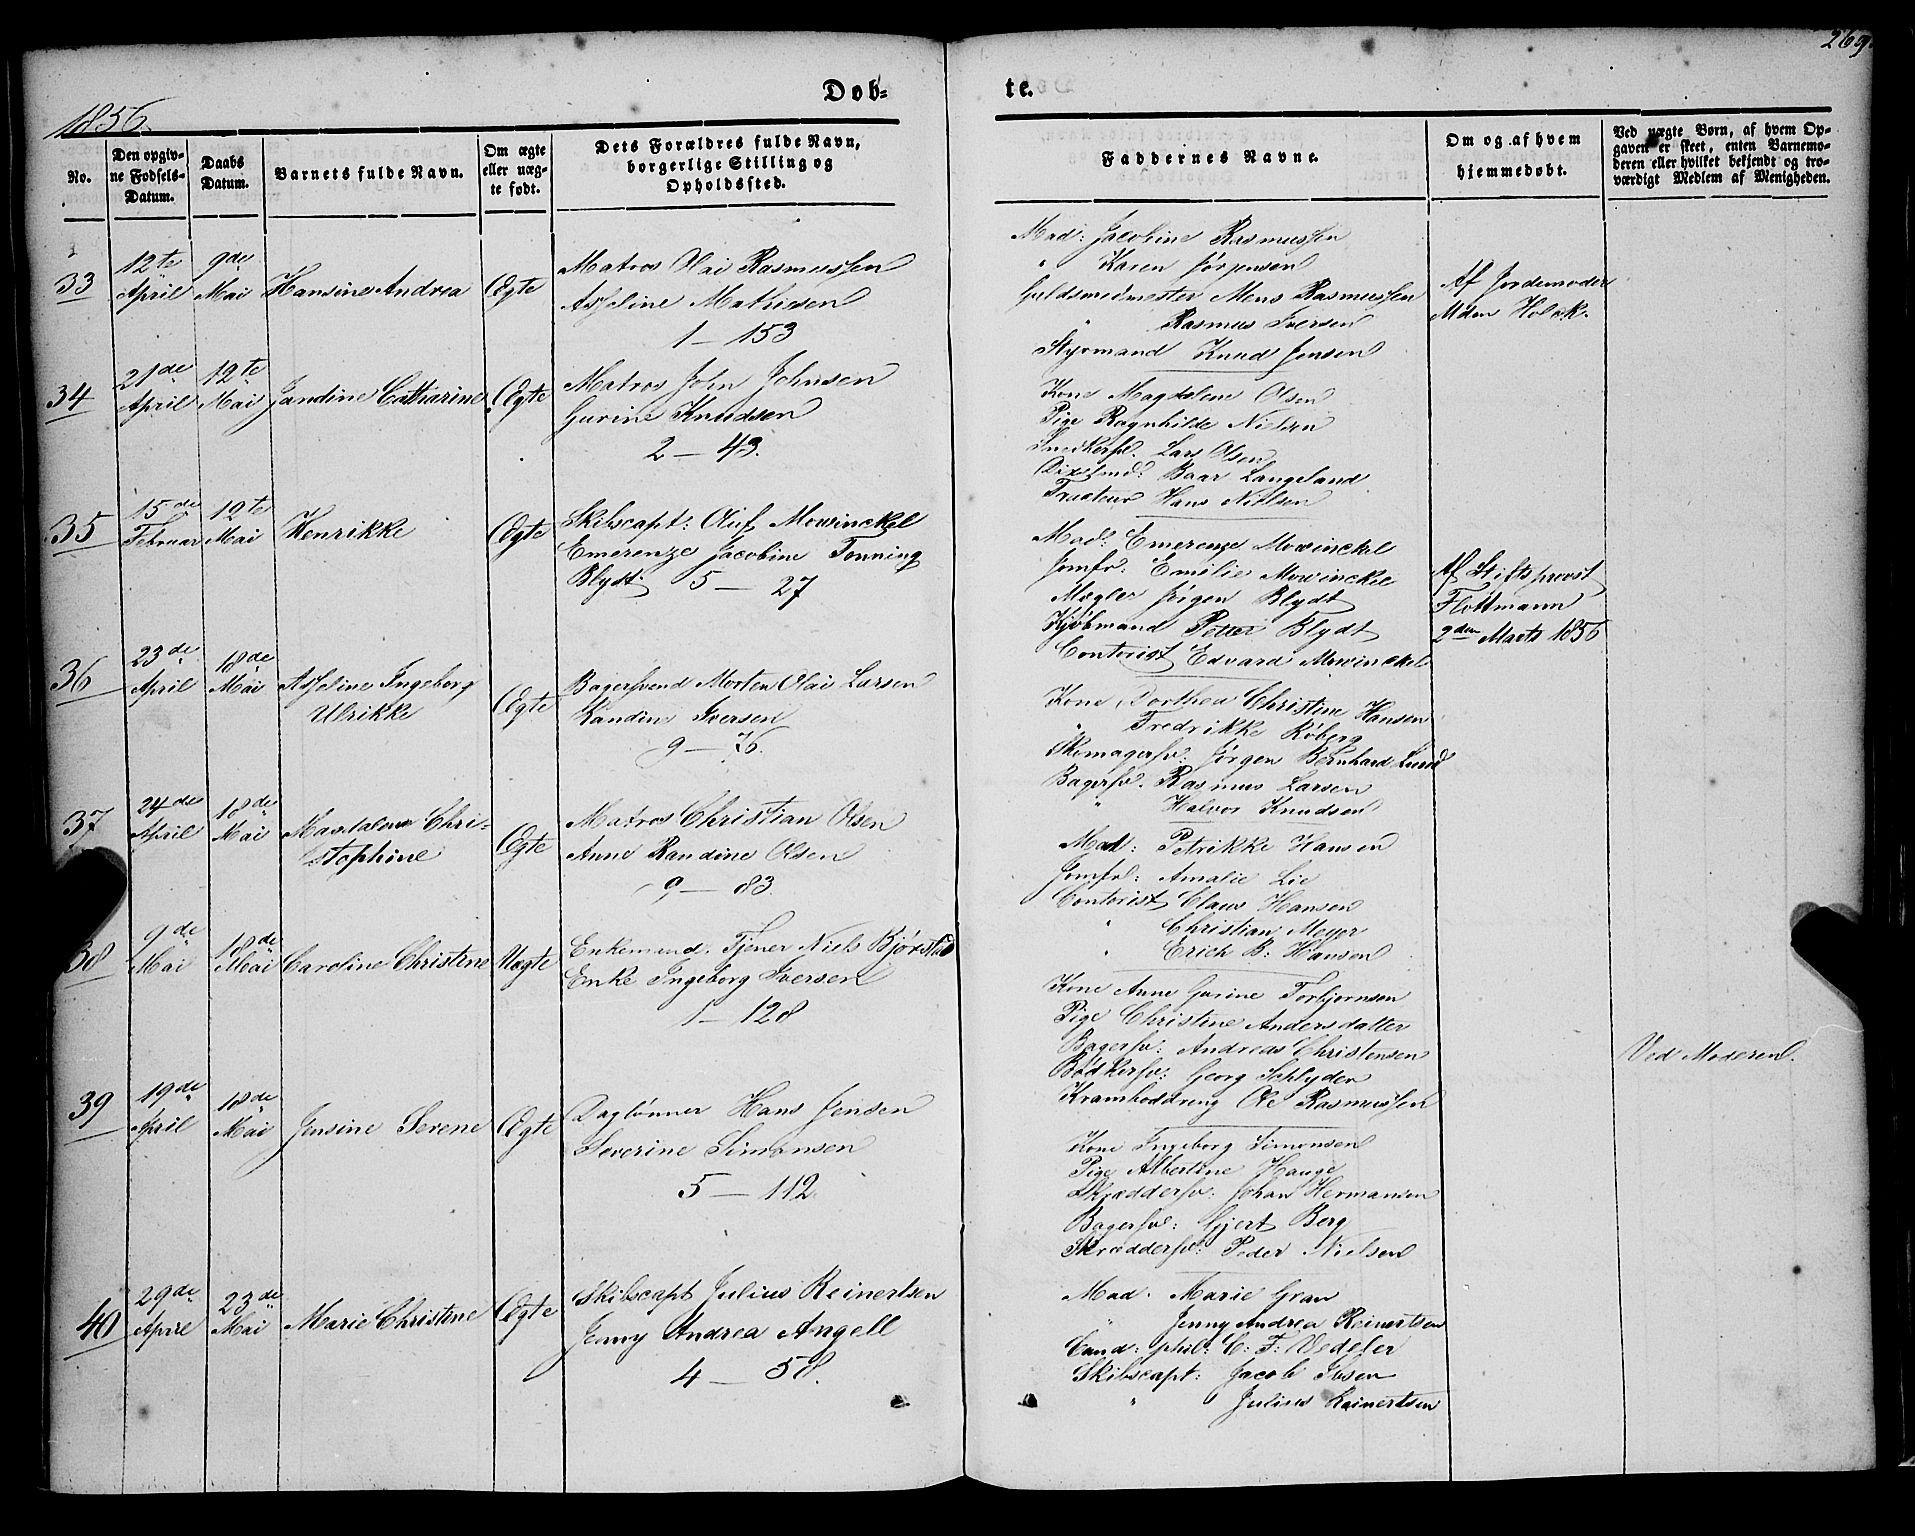 269.
1856.
Døb-
te.
No.
Den opgiv-
ne Fødsels-
Datum.
Daabs
Datum.
Barnets fulde Navn.
Om ægte
eller uæg-
te født.
Dets Forældres fulde Navn,
borgerlige Stilling og
Opholdssted.
Faddernes Navne.
Om og af hvem
hjemmedøbt.
Ved uægte Børn, af hvem Op-
gaven er skeet, enten Barnemo-
deren eller hvilket bekjendt og tro-
værdigt Medlem af Menigheden.
33
12te
April
9de
Mai
Hansine Andrea
Ægte
Matros Olai Rasmussen
Asseline Mathisen
1 — 153
Mad: Jacobine Rasmussen
" Karen Jørgensen
Guldsmedmester Mens Rasmussen
" Rasmus Iversen
Styrmand Knud Jensen
Af Jordemoder
Mdm Holck.
34
21de
April
12te
Mai
Jandine Catharine
Ægte
Matros John Johnsen
Gurine Knudsen
2 — 43.
Kone Magdalene Olsen
Pige Ragnhilde Nielsen
Snedkersv. Lars Olsen
Baar Langeland
Tracteur Hans Nielsen
35
15de
Februar
12te
Mai
Henrikke
Ægte
Skibscapt: Oluf Mowinckel
Emerenze Jacobine Tonning
Blydt. 5 — 27
Mad: Emerenze Mowinckel
Jomfr: Emilie Mowinckel
Mægler Jørgen Blydt
Kjøbmand Petter Blydt
Contorist Edvard Mowinckel
Af Stiftsprovst
Flottmann
2den Marts 1856
36
23de
April
18de
Mai
Asseline Ingeborg
Ulrikke
Ægte
Bagersvend Morten Olai Larsen
Randine Iversen
9 — 76.
Kone Dorthea Christine Hansen
" Fredrikke Røberg
Skomagersv: Jørgen Bernhard Lund
Bagersv. Rasmus Larsen
" Halvor Knudsen
37
24de
April
18de
Mai
Magdalene Chri-
stophine
Ægte
Matros Christian Olsen
Anne Randine Olsen
9 — 83.
Mad: Petrikke Hansen
Jomfr: Amalie Lie
Contorist Claus Hansen
" Christian Meyer
" Erich B: Hansen
38
9de
Mai
18de
Mai
Caroline Christine
Uægte
Enkemand. Tjener Niels Bjørstad
Enke Ingeborg Iversen
1 — 128
Kone Anne Gurine Torbjørnsen
Pige Christine Andersdatter
Bagersv: Andreas Christensen
Bødkersv: Georg Schlyden
Kramboddreng Ole Rasmussen
Ved Moderen.
39
19de
April
18de
Mai
Jensine Serene
Ægte
Daglønner Hans Jensen
Severine Simonsen
5 — 112
Kone Ingeborg Simonsen
Pige Albertine Hauge
Skræddersv: Johan Hermansen
Bagersv: Gjert Berg
Skræddersv: Peder Nielsen
40
29de
April
23de
Mai
Marie Christine
Ægte
Skibscapt Julius Reinertsen
Jenny Andrea Angell
4 — 58.
Mad. Marie Gran
" Jenny Andrea Reinertsen
Cand: phil: C: F: Vedeler
Skibscapt: Jacob Ibsen
" Julius Reinertsen